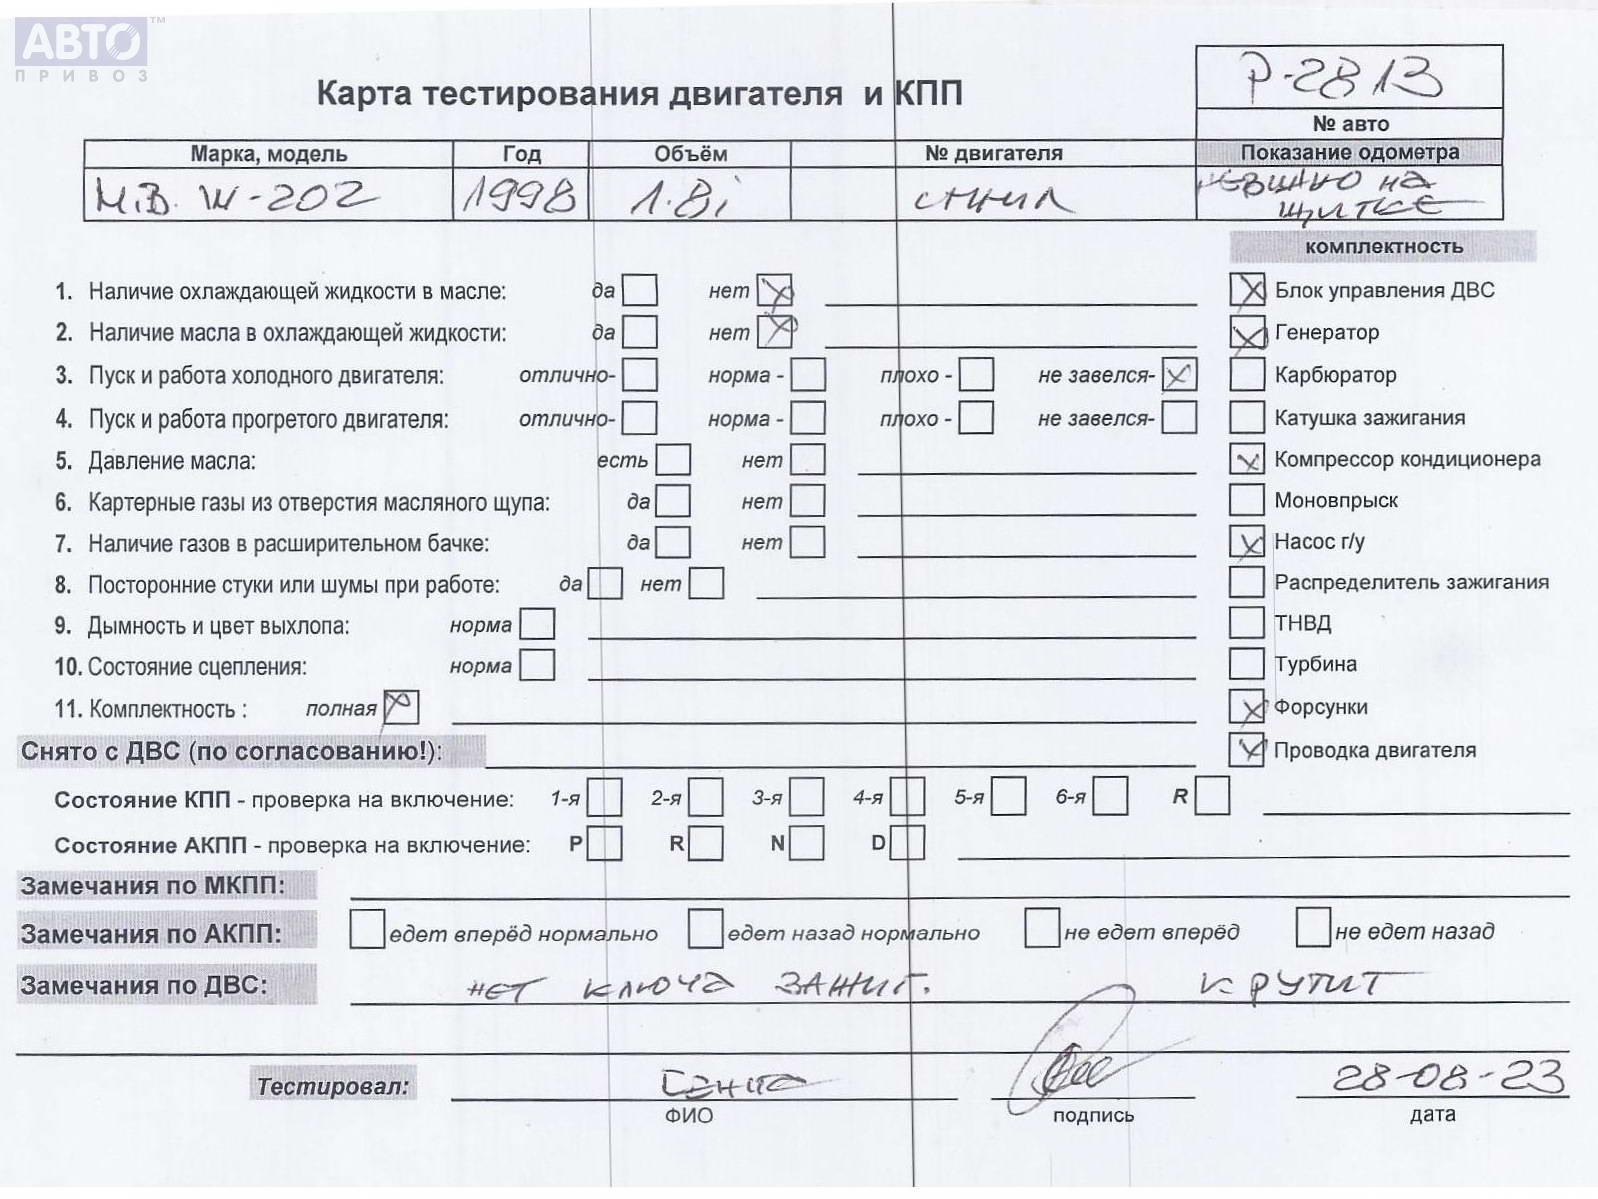 АВТО™
ПРИВОЗ
Карта тестирования двигателя и КПП
Р-2813
№ авто
Марка, модель Год Объём № двигателя Показание одометра
М.В. W-202 1998 1.8i на щитке
комплектность
1. Наличие охлаждающей жидкости в масле: да нет
Блок управления ДВС
2. Наличие масла в охлаждающей жидкости: да нет
Генератор
3. Пуск и работа холодного двигателя: отлично- норма - плохо - не завелся-
Карбюратор
4. Пуск и работа прогретого двигателя: отлично- норма - плохо - не завелся-
Катушка зажигания
5. Давление масла: есть нет
Компрессор кондиционера
6. Картерные газы из отверстия масляного щупа: да нет
Моновпрыск
7. Наличие газов в расширительном бачке: да нет
Насос г/у
8. Посторонние стуки или шумы при работе: да нет
Распределитель зажигания
9. Дымность и цвет выхлопа: норма
ТНВД
10. Состояние сцепления: норма
Турбина
11. Комплектность : полная
Форсунки
Снято с ДВС (по согласованию!):
Проводка двигателя
Состояние КПП - проверка на включение: 1-я 2-я 3-я 4-я 5-я 6-я R
Состояние АКПП - проверка на включение: P R N D
Замечания по МКПП:
Замечания по АКПП: едет вперёд нормально едет назад нормально не едет вперёд не едет назад
Замечания по ДВС: нет ключа зажиг. крутит
Тестировал: 28-08-23
ФИО подпись дата